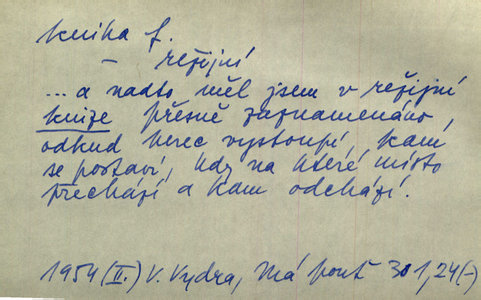 kniha f.
– režijní
...a nadto měl jsem v režijní
knize přesně zaznamenáno,
odkud herec vystoupí, kam
se postaví, kdy na které místo
přechází a kam odchází.
1954 (II.) V. Vydra, Má pouť 301,24(–)